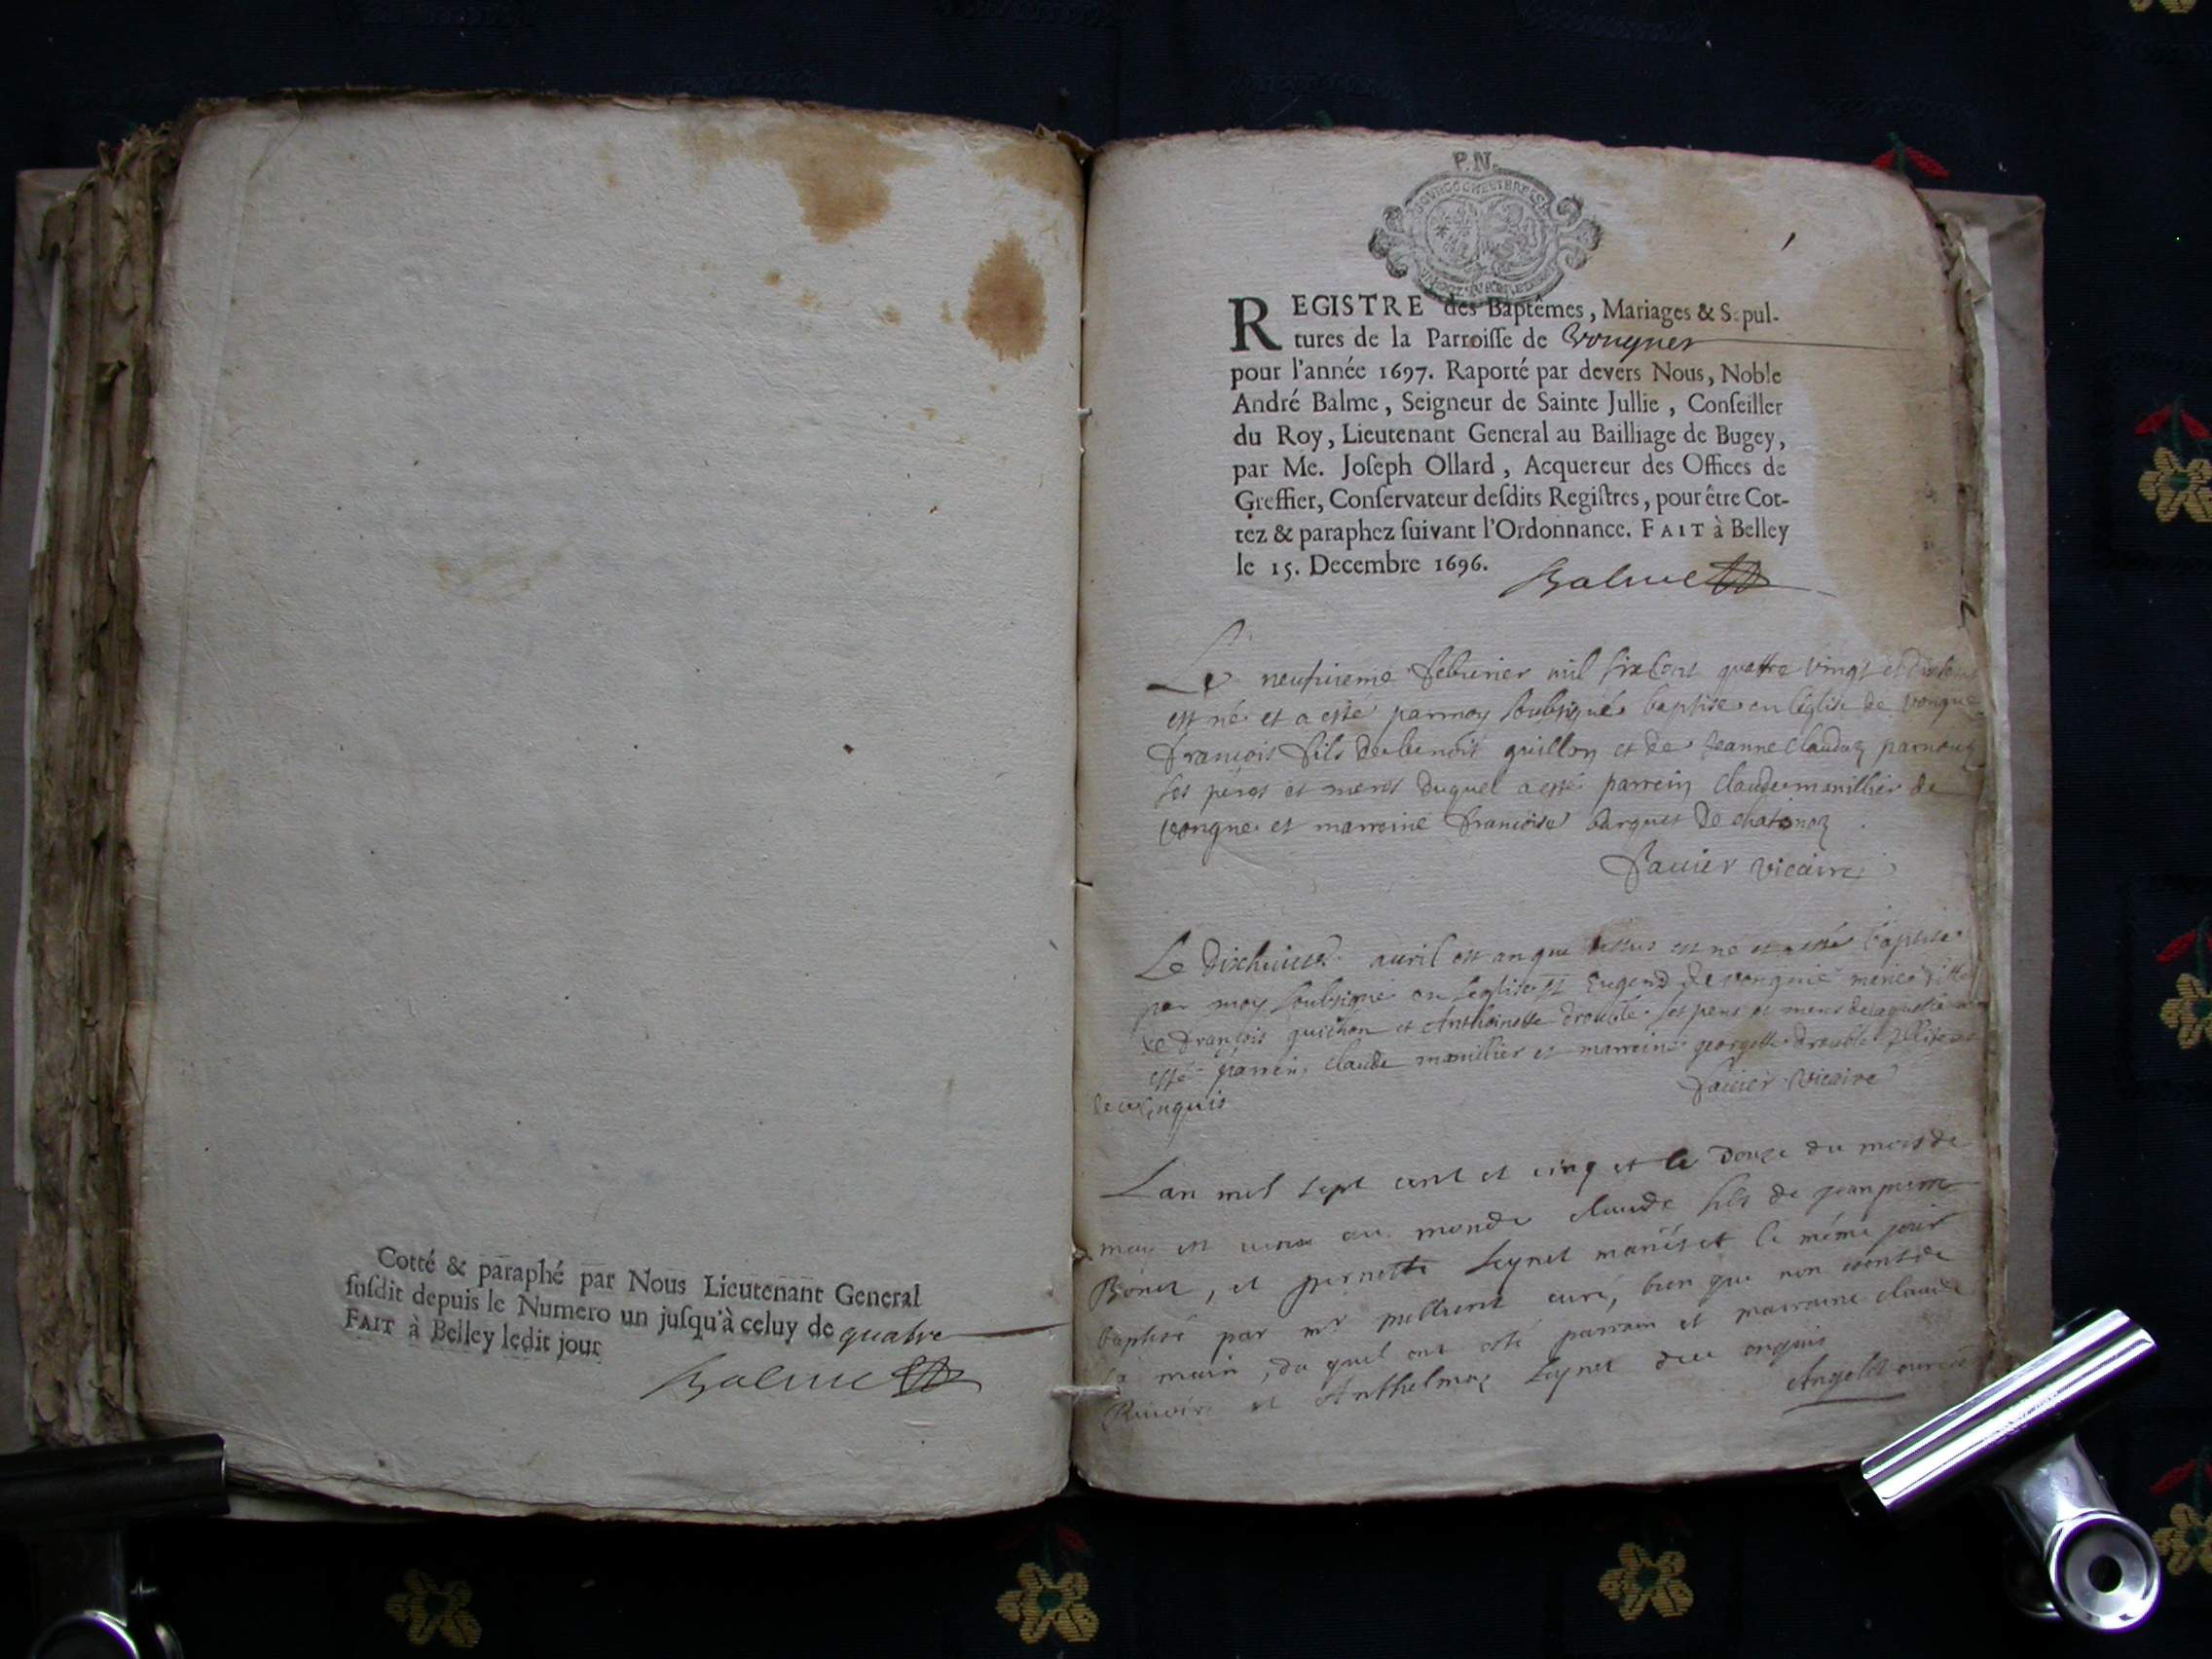 Cotté & paraphé par Nous Lieutenant General
ſuſdit depuis le Numero un juſqu'à celuy de quatre
FAIT à Belley ledit jour
Balme
P.N.
REGISTRE des Baptêmes, Mariages & Sepul-
tures de la Parroiſſe de
pour l'année 1697. Raporté par devers Nous, Noble
André Balme, Seigneur de Sainte Jullie, Conſeiller
du Roy, Lieutenant General au Bailliage de Bugey,
par Me. Joſeph Ollard, Acquereur des Offices de
Greffier, Conſervateur deſdits Regiſtres, pour être Cot-
tez & paraphez ſuivant l'Ordonnance. FAIT à Belley
le 15. Decembre 1696.
Balme
Le neufvieme febvrier mil six cent quattre vingt et
est né et a esté par moy soubsigné baptise en leglise de vongne
francois fils de benoit guillon et de Jeanne Claudaz
ses peres et meres duquel a esté parrein claude manillier de
vongne et marreine francoise de
vicaire
Le avril est né et a esté baptisé
par moy soubsigné en leglise St Eugend de vongne
de françois guichon et Anthoinette drouble ses pere et mere de laquelle
esté parrein claude manillier et marreine georgette drouble
vicaire
Lan mil sept cent et cinq et le douze du mois de
may est venu au monde claude fils de jean pierre
et pernette Leynet mariés et le même jour
baptisé par mr curé, bien que non
sa main, du quel ont esté parrain et marraine claude
et Anthelmaz Leynet